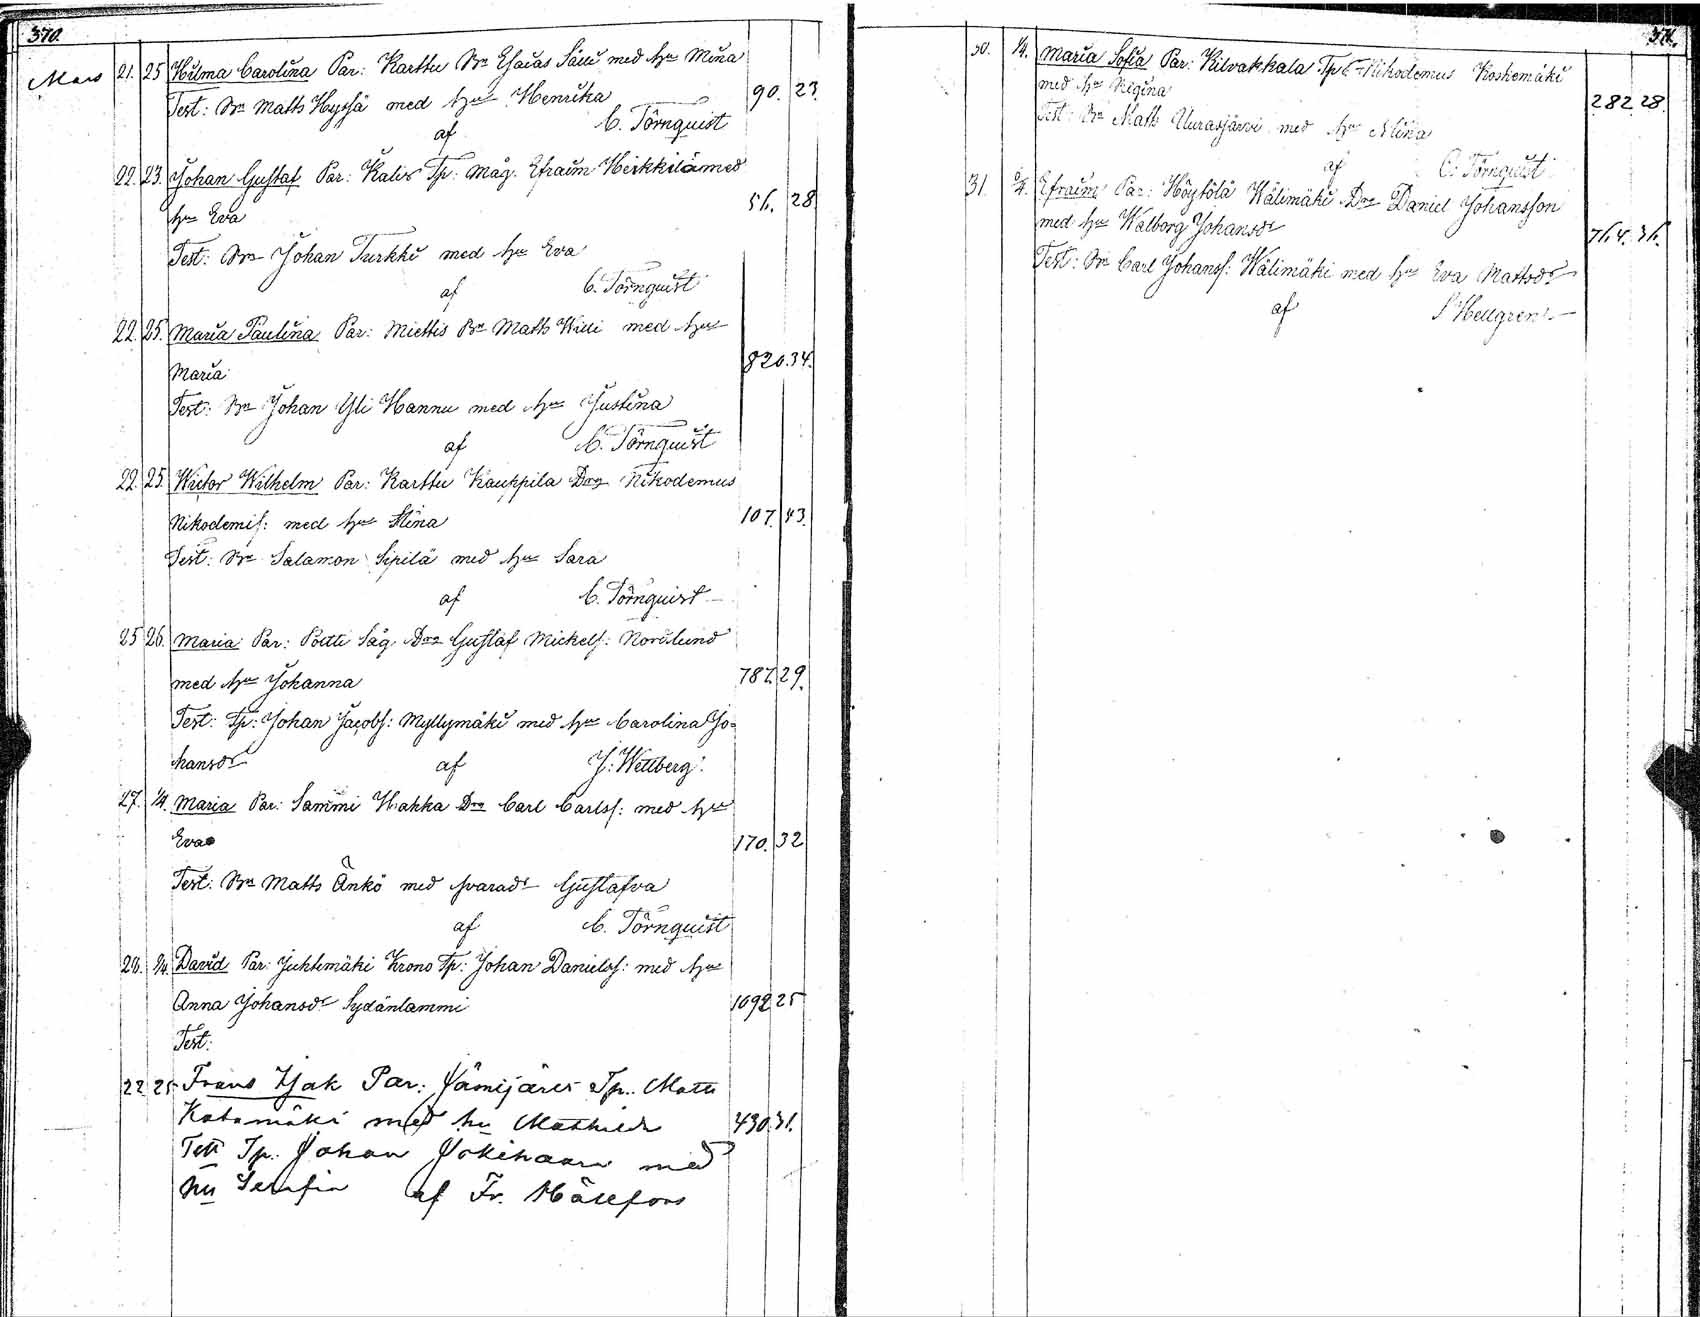 370.
Mars 21. 25 Hilma Carolina Par: Karttu Bn Esaias Säili med hu Mina
Test: Bn Matts Hyssä med hu Henrika 90. 23.
af C. Törnquist
22. 23. Johan Gustaf Par: Kales Tp: Mag. Efraim Heikkilä med
hu Eva 56. 28
Test: Bn Johan Turkki med hu Eva
af C. Törnquist
22. 25. Maria Paulina Par: Miettis Bn Matts Wili med hu
Maria 820. 34.
Test: Bn Johan Yli Hannu med hu Justina
af C. Törnquist
22. 25. Wictor Wilhelm Par: Karttu Kauppila Drg Nikodemus
Nikodemis: med hu Mina 107. 43.
Test: Bn Salamon Sipilä med hu Sara
af C. Törnquist
25 26. Maria Par: Potti Såg Drg Gustaf Mickels: Nordlund
med hu Johanna 787. 29.
Test: Tp: Johan Jacobs: Myllymäki med hu Carolina Jo-
hansdr af J. Wettberg.
27. 1/4. Maria Par: Sammi Hakka Drg Carl Carlss: med hu
Eva 170. 32
Test: Bn Matts Änkö med svarad Gustafva
af C. Törnquist
28. 2/4 David Par: Juhtimäki Krono Tp: Johan Daniels: med hu
Anna Johansdr Sydänlammi 1092 25
Test:
22 25 Frans Isak Par: Jämijärvi Tp.. Matts
Katamäki med hu Mathilda 430. 31.
Test Tp. Johan Jokihaara med
hu Serafia af Fr. Hälefors
371.
30. 1/4. Maria Sofia Par: Kilvakkala Tp Nikodemus Koskemäki
med hu Regina 282. 28.
Test: Bn Matts Uurasjärvi med hu Mina
af C. Törnquist
31. 6/4. Efraim Par: Höytölä Wälimäki Drg Daniel Johansson
med hu Walborg Johansdr 764. 36.
Test: Bn Carl Johans: Wälimäki med hu Eva Mattsdr
af S Hellgren